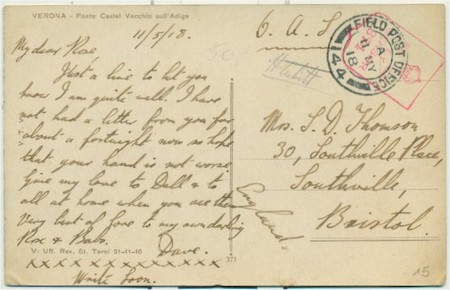 VERONA - Ponte Castel Vecchio sull'Adige
11/5/18.
My dear Rose
Just a line to let you
know I am quite well. I have
not had a letter from you for
about a fortnight now so hope
that your hand is not worse
Give my love to Doll & to
all at home when you see them
Very best of love to my own darling
Rose & Babs.
Dave.
V. Uff. Rev. St. Terni 31-11-16
x x x x x x x x x x x x x
Write Soon.
377
O. A. S.
FIELD POST OFFICE
A
11 MY
18
144
50
Mrs. S. D. Thomson
30, Southville Place,
Southville,
Bristol.
England.
15